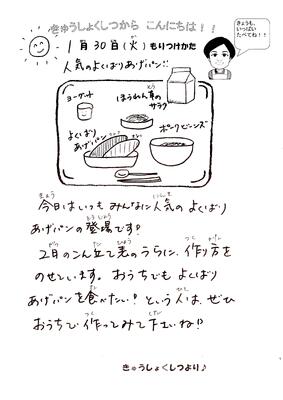 きゅうしょくしつから こんにちは!!
きょうも、
いっぱい
たべてね!!
1月30日(火) もりつけかた
人気のよくばりあげパン!!
ヨーグルト
ほうれん草の
サラダ
よくばり
あげパン
ポークビーンズ
今日はいつも みんなに人気の よくばり
あげパンの登場です!
2月のこん立て表のうらに、作り方を
のせています。 おうちでも よくばり
あげパンを食べたい! という人は、ぜひ
おうちで 作ってみて下さいね!?
きゅうしょくしつより♪